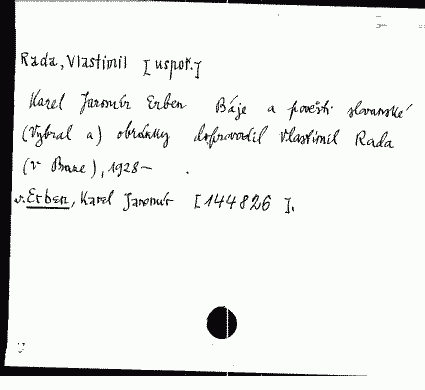 Rada, Vlastimil [uspoř.]
Karel Jaromír Erben Báje a pověsti slovanské
(Vybral a) obrázky doprovodil Vlastimil Rada
(v Praze), 1928—.
v. Erben, Karel Jaromír [144826].